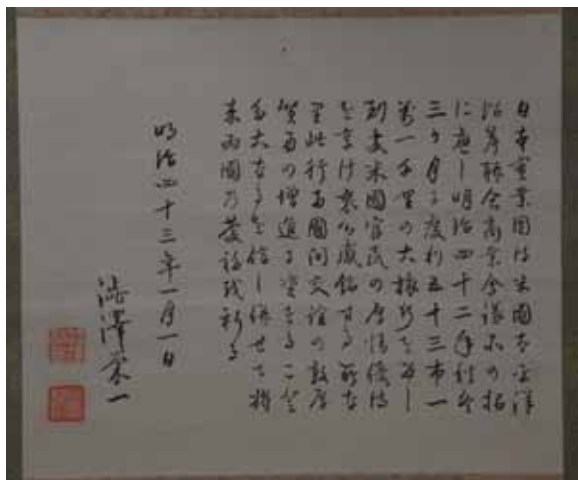 日本実業団は米国太平洋
沿岸聯合商業会議所の招
に応し明治四十二年
三ヶ月に度り五十三市一
万一千哩の大旅行を為し
到処米国官民の厚情優待
を享け衷心感銘する所な
り此行両国間交誼の敦厚
貿易の増進に資すること
多大なるを信し併せて将
来両国の慶福を祈る
明治四十三年一月一日
澁澤栄一